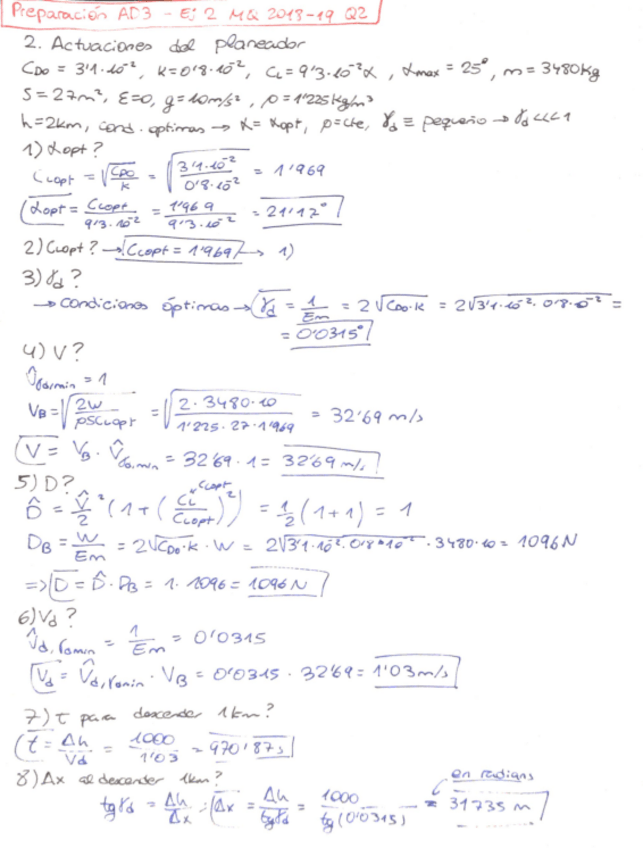 Preparación AD3 - Ej 2 MQ 2018-19 Q2
2. Actuaciones del planeador
C_D0 = 3'1·10⁻², K=0'8·10⁻², C_L=9'3·10⁻²α, α_max = 25°, m = 3480kg
S=27m², ε=0, g=10m/s², ρ=1'225kg/m³
h=2km, cond. optimas → α= αopt, ρ=cte, γ_d ≡ pequeño → γ_d <<< 1
1) αopt?
C_Lopt = √(C_D0/K) = √(3'1·10⁻²/0'8·10⁻²) = 1'969
αopt = C_Lopt/9'3·10⁻² = 1'969/9'3·10⁻² = 21'17°
2) C_Lopt? → C_Lopt = 1'969 → 1)
3) γ_d?
→ condiciones óptimas → γ_d = 1/Em = 2√(C_D0·K) = 2√(3'1·10⁻²·0'8·10⁻²) =
= 0'0315°
4) V?
V̂_γdmin = 1
V_B = √(2W/ρSC_Lopt) = √(2·3480·10/1'225·27·1'969) = 32'69 m/s
V = V_B · V̂_γdmin = 32'69·1 = 32'69 m/s
5) D?
C_Lopt
D̂ = V̂²/2 (1+(C_L/C_Lopt)²) = 1/2 (1+1) = 1
D_B = W/Em = 2√(C_D0·K) · W = 2√(3'1·10⁻²·0'8·10⁻²) · 3480·10 = 1096N
=> D = D̂·D_B = 1·1096 = 1096 N
6) V_d?
V̂_d,γdmin = 1/Em = 0'0315
V_d = V̂_d,γdmin · V_B = 0'0315 · 32'69 = 1'03 m/s
7) t para descender 1km?
t = Δh/V_d = 1000/1'03 = 970'87s
8) Δx al descender 1km?
en radians
tgγ_d = Δh/Δx ; Δx = Δh/tgγ_d = 1000/tg(0'0315) = 31735 m